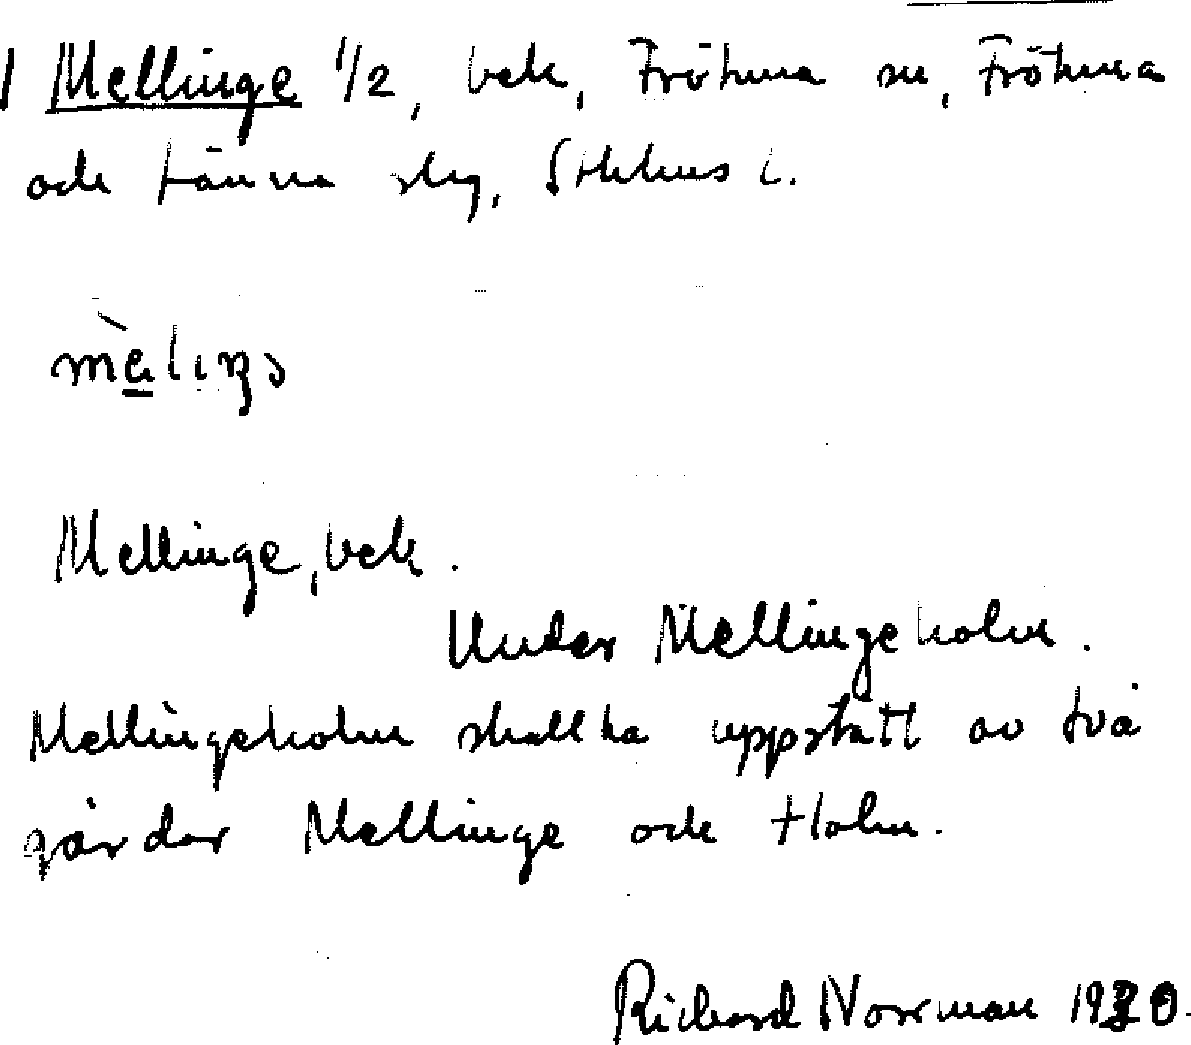 Mellinge 1/2, bek, Frötuna sn, Frötuna
och Länna slg, Sthlms l.
Mellinge, bek.
Under Mellingeholm.
Mellingeholm skall ha uppstått av två
gårdar Mellinge och Holm.
Richard Norrman 1930.